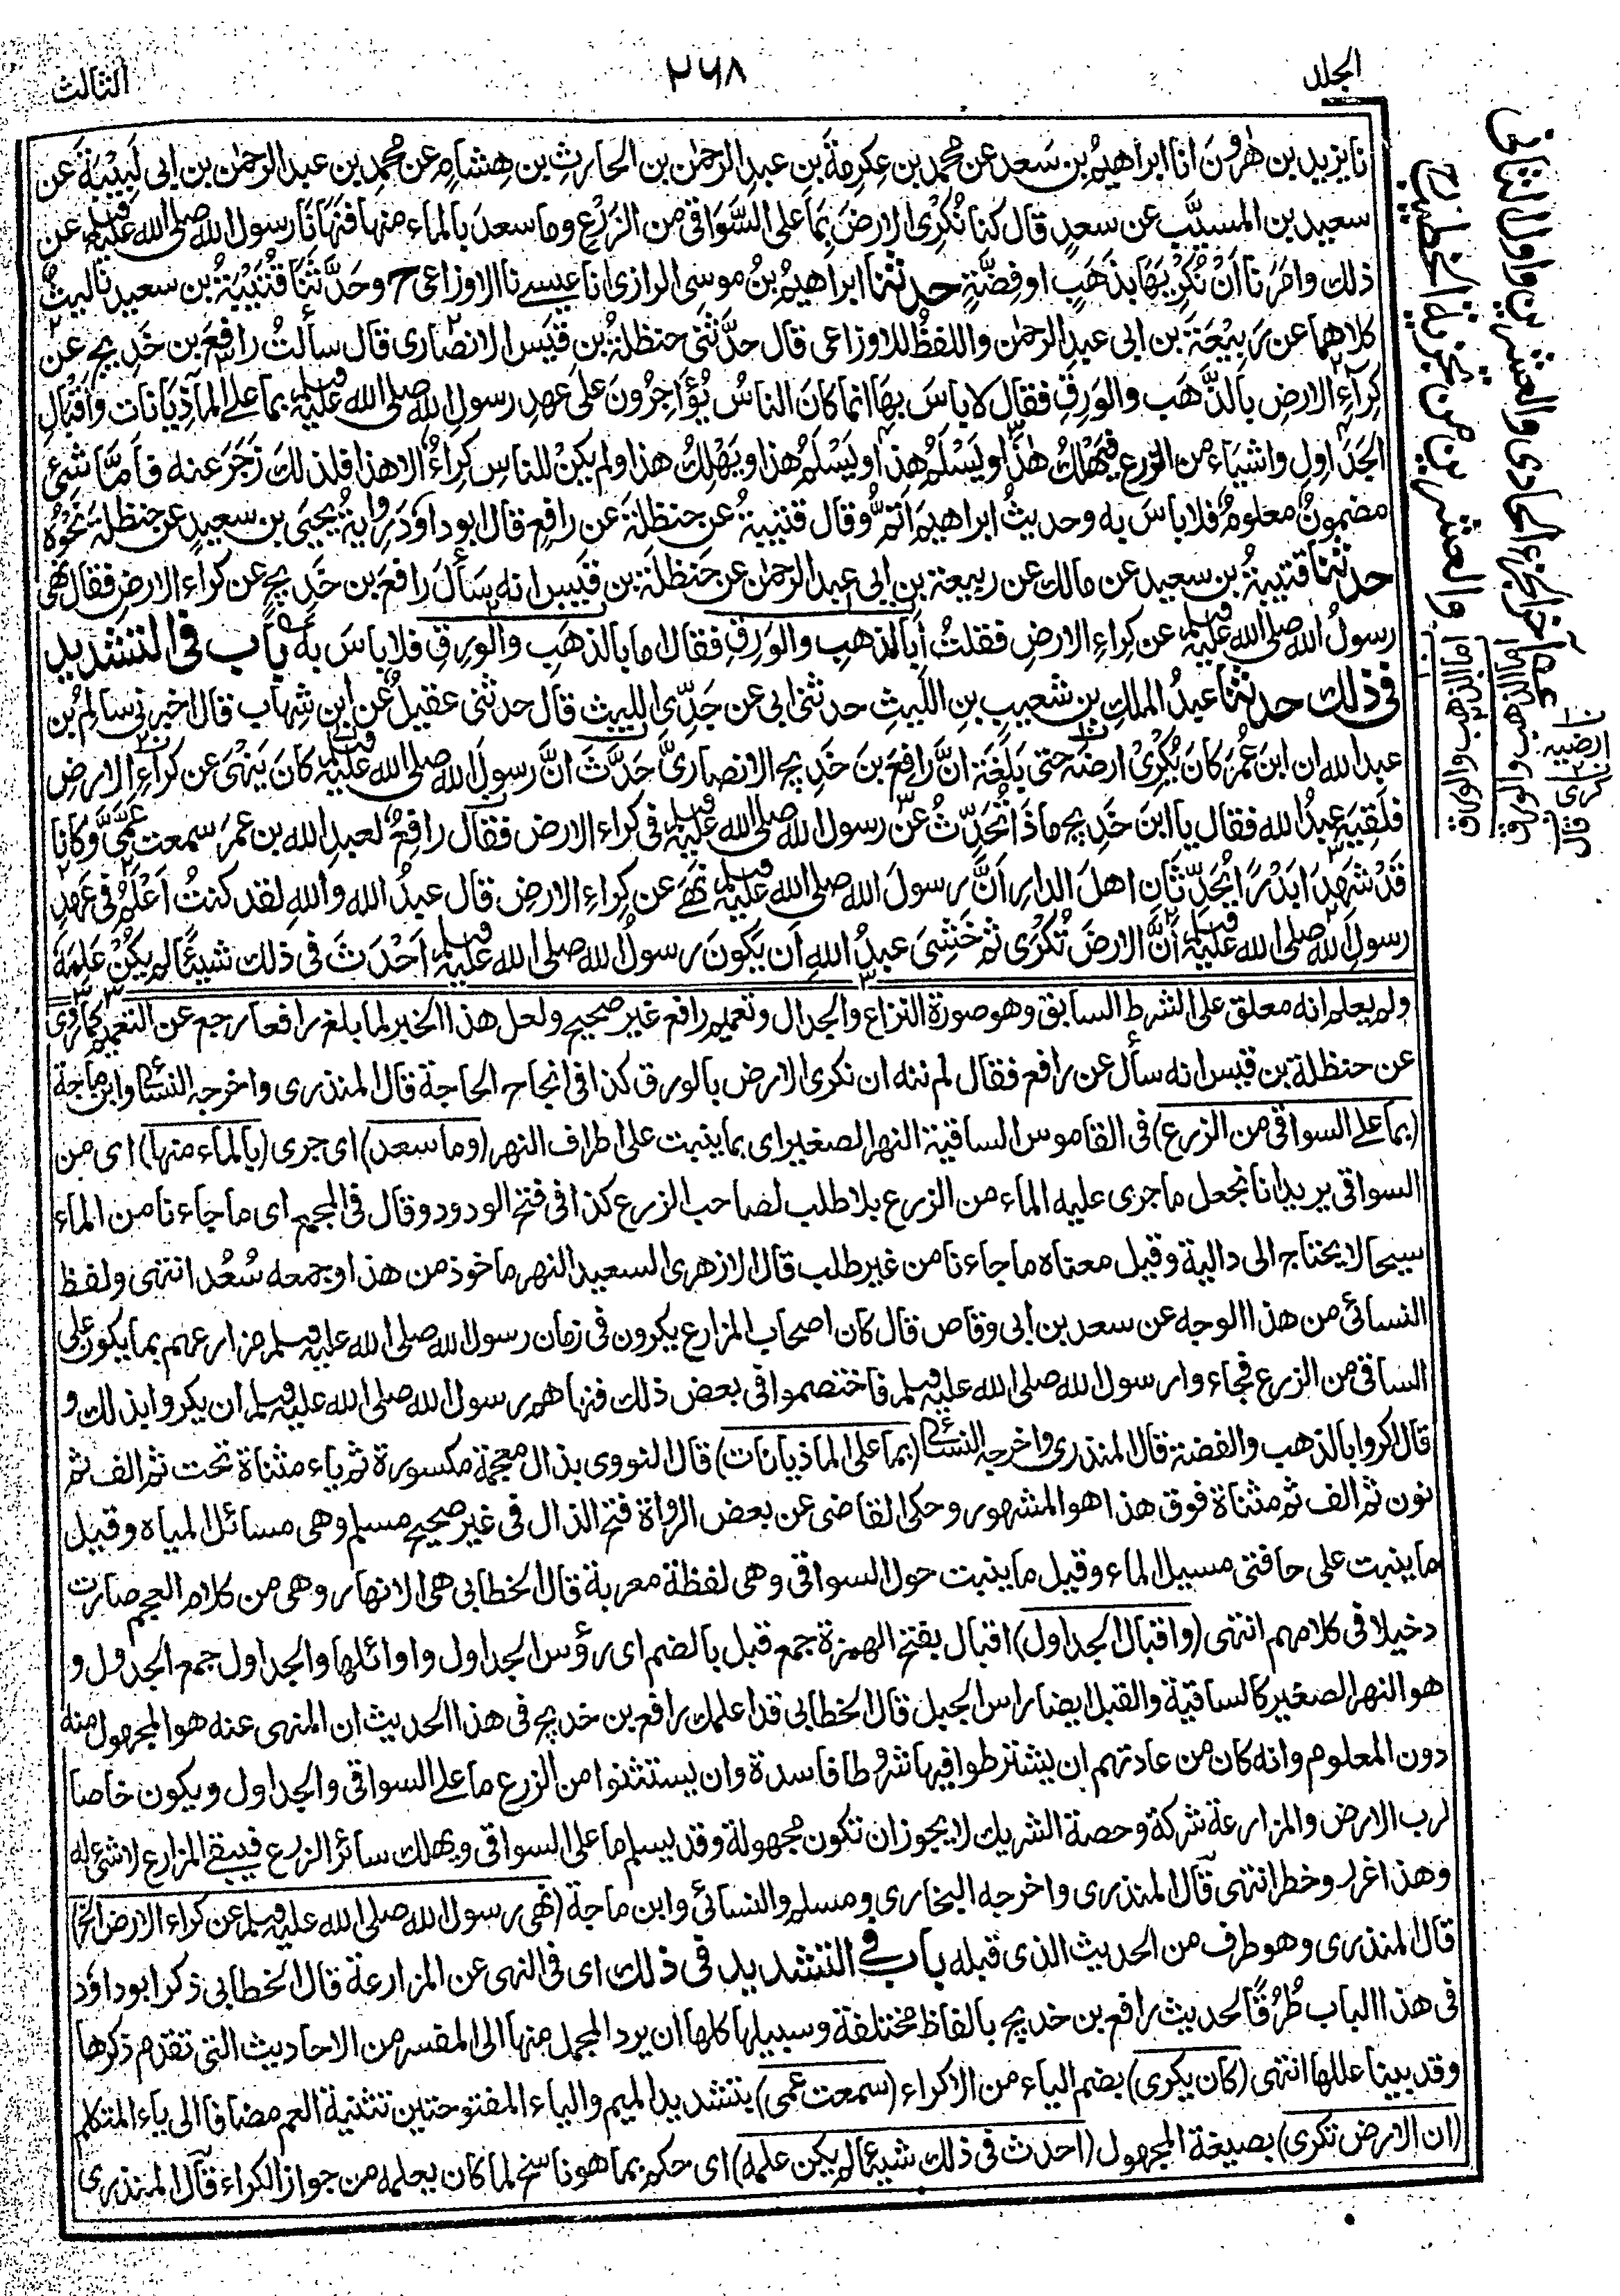 الجلد
٢٦٨
الثالث
نا يزيد بن هٰرُونَ انا ابراهيمُ بن سَعد عن محمد بن عِكرِمةَ بنِ عبدِ الرحمٰن بن الحارثِ بن هِشامٍ عن محمدِ بن عبد الرحمٰن بن ابى لَبِيْبَةَ عن
سعيد بن المسيَّب عن سعدٍ قال كنا نُكْرِى الارضَ بما على السَّوَاقى من الزَرْعِ وما سعدَ بالماء منها فنَهَانَا رسول الله صلى الله عليه وسلم عن
ذلك وامَرَنا اَنْ نُكْرِيَهَا بذَهَبٍ او فِضَّةٍ حدثنا ابراهيمُ بنُ موسى الرازى انا عيسے نا الاوزاعى ح وحَدَّثَنَا قُتَيْبَةُ بن سعيد نا ليثٌ
كلاهما عن رَبِيْعَةَ بن ابى عبدِ الرحمٰن واللفظُ للاوزاعى قال حدَّثَنى حنظلةُ بن قَيس الانصارى قال سألتُ رافعَ بن خَدِيجٍ عن
كِرَاءِ الارضِ بالذَّهَب والوَرِقِ فقال لا باسَ بها انما كان الناسُ يُؤَاجِرُونَ على عهدِ رسول الله صلى الله عليه وسلم بما علے الماذِيَانات واَقْبَالِ
الجَدَاوِل واشياء من الزرع فيَهْلكُ هٰذا ويَسْلَمُ هذا ويَسْلَمُ هذا ويَهْلِكُ هذا ولم يكنْ للناس كِرَاءٌ الا هذا فلذلك زَجَرَ عنه فأمَّا شئ
مضمونٌ معلومٌ فلا باسَ به وحديثُ ابراهيمَ اَتَمُّ وقال قتيبةُ عن حنظلةَ عن رافع قال ابوداؤدَ رِوايةُ يحيى بن سعيدٍ عن حنظلةَ نَحْوُه
حدثنا قتيبةُ بن سعيد عن مالك عن ربيعةَ بن ابى عبد الرحمٰن عن حَنظلةَ بن قَيسٍ انه سَأَلَ رافعَ بن خَدِيجٍ عن كراء الارض فقال نَهى
رسولُ الله صلى الله عليه وسلم عن كِراءِ الارضِ فقلتُ اَبِالذهبِ والوَرِقِ فقال اما بالذهَبِ والوَرِقِ فلا باسَ به باب فى التشديد
فى ذلك حدثنا عبدُ الملكِ بن شعيبِ بنِ اللَيثِ حدثنى ابى عن جَدِّى الليث قال حدثنى عقيلٌ عن ابن شِهاب قال اخبرنى سالمُ بن
عبد الله ان ابنَ عُمَر كان يُكْرِىْ ارضَه حتى بَلَغَهُ انَّ رافعَ بن خَدِيجٍ الانصارىَّ حَدَّثَ انَّ رسولَ الله صلى الله عليه وسلم كان يَنْهٰى عن كراءِ الارضِ
فلَقِيَه عبدُ الله فقال يا ابنَ خَدِيجٍ ماذا تُحَدِّثُ عن رسول الله صلى الله عليه وسلم فى كراء الارض فقال رافعٌ لعبدِ الله بن عمرَ سمعت عَمَّىَّ وكانا
قَدْ شَهِدَا بَدْرًا يُحَدِّثَان اهلَ الدارِ اَنَّ رسولَ الله صلى الله عليه وسلم نَهَى عن كِراءِ الارضِ قال عبدُ الله واللهِ لقد كنتُ اَعْلَمُ فى عَهدِ
رسولِ الله صلى الله عليه وسلم اَنَّ الارضَ تُكْرٰى ثم خَشِىَ عبدُ اللهِ اَن يكونَ رسولُ الله صلى الله عليه وسلم اَحْدَثَ فى ذلك شيئًا لم يكُنْ عَلِمَه
ولم يعلم انه معلق على الشرط السابق وهو صورة النزاع والجدال وتعميم رافع غير صحيح ولعل هذا الخبر لما بلغ رافعا رجع عن التعميم كما روى
عن حنظلة بن قيس انه سأل عن رافع فقال لم ننه ان نكرى الارض بالورق كذا فى انجاح الحاجة قال المنذرى واخرجه النسائى وابن ماجة
(بما على السواقى من الزرع) فى القاموس الساقية النهر الصغير اى بما ينبت على اطراف النهر (وما سعد) اى جرى (بالماء منها) اى من
السواقى يريد انا نجعل ما جرى عليه الماء من الزرع بلا طلب لصاحب الزرع كذا فى فتح الودود وقال فى المجمع اى ما جاءنا من الماء
سيحا لا يحتاج الى دالية وقيل معناه ما جاءنا من غير طلب قال الازهرى السعيد النهر ماخوذ من هذا وجمعه سُعُد انتهى ولفظ
النسائى من هذا الوجه عن سعد بن ابى وقاص قال كان اصحاب المزارع يكرون فى زمان رسول الله صلى الله عليه وسلم مزارعهم بما يكون على
الساقى من الزرع فجاءوا رسول الله صلى الله عليه وسلم فاختصموا فى بعض ذلك فنهاهم رسول الله صلى الله عليه وسلم ان يكروا بذلك و
قال اكروا بالذهب والفضة قال المنذرى واخرجه النسائى (بما على الماذيانات) قال النووى بذال معجمة مكسورة ثم ياء مثناة تحت ثم الف ثم
نون ثم الف ثم مثناة فوق هذا هو المشهور وحكى القاضى عن بعض الرواة فتح الذال فى غير صحيح مسلم وهى مسائل المياه وقيل
ما ينبت على حافتى مسيل الماء وقيل ما ينبت حول السواقى وهى لفظة معربة قال الخطابى هى الانهار وهى من كلام العجم صارت
دخيلا فى كلامهم انتهى (واقبال الجداول) اقبال بفتح الهمزة جمع قبل بالضم اى رؤس الجداول واوائلها والجداول جمع الجدول و
هو النهر الصغير كالساقية والقبل ايضا راس الجبل قال الخطابى قد اعلمك رافع بن خديج فى هذا الحديث ان المنهى عنه هو المجهول منه
دون المعلوم وانه كان من عادتهم ان يشترطوا فيها شروطا فاسدة وان يستثنوا من الزرع ما على السواقى والجداول ويكون خاصا
لرب الارض والمزارعة شركة وحصة الشريك لا يجوز ان تكون مجهولة وقد يسلم ما على السواقى ويهلك سائر الزرع فيبقى المزارع لا شئ له
وهذا غرر وخطر انتهى قال المنذرى واخرجه البخارى ومسلم والنسائى وابن ماجة (نهى رسول الله صلى الله عليه وسلم عن كراء الارض الخ)
قال المنذرى وهو طرف من الحديث الذى قبله باب فى التشديد فى ذلك اى فى النهى عن المزارعة قال الخطابى ذكر ابوداؤد
فى هذا الباب طُرُقًا لحديث رافع بن خديج بالفاظ مختلفة وسبيلها كلها ان يرد المجمل منها الى المفسر من الاحاديث التى تقدم ذكرها
وقد بينا عللها انتهى (كان يكرى) بضم الياء من الاكراء (سمعت عمى) بتشديد الميم والياء المفتوحتين تثنية العم مضافا الى ياء المتكلم
(ان الارض تكرى) بصيغة المجهول (احدث فى ذلك شيئا لم يكن علمه) اى حكم بما هو ناسخ لما كان يعلمه من جواز الكراء قال المنذرى
آخر الجزء الحادى والعشرين واول الثانى
والعشرين من تجزئة الخطيب
اما الذهب والورق
اما الذهب والورق
ارضيه
كرى
قال